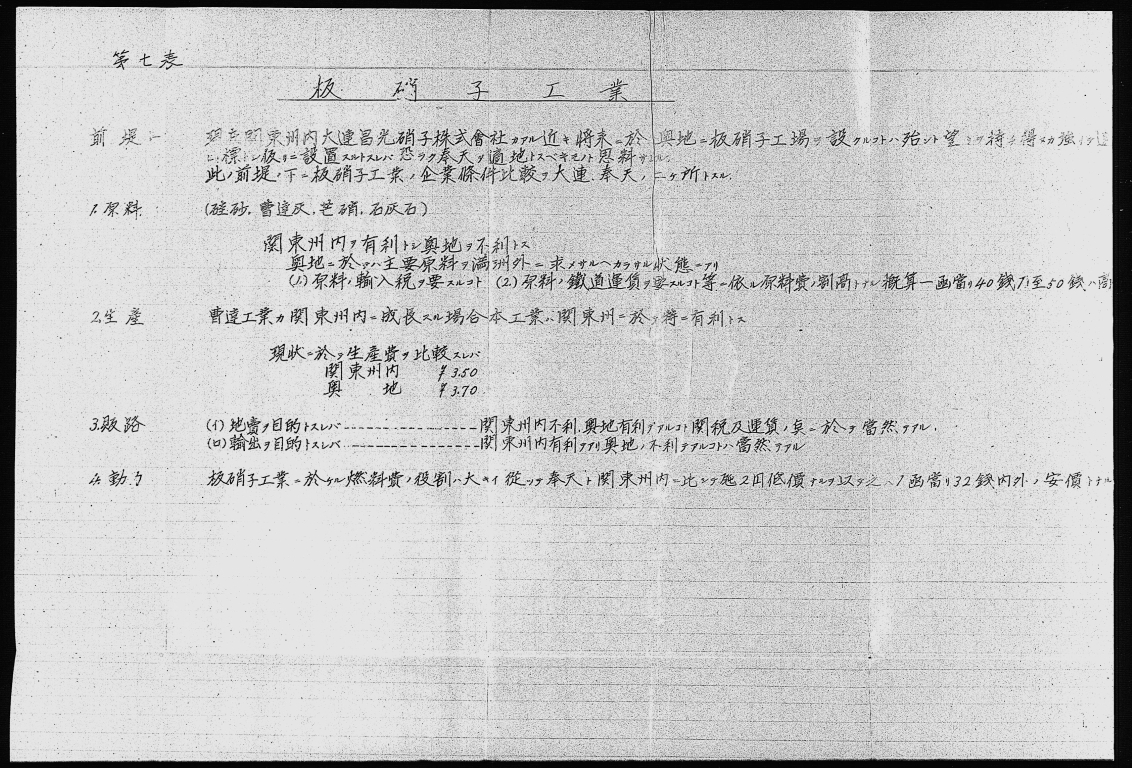 第七表
板硝子工業
前堤一 現在関東州内大連昌光硝子株式會社カアル近キ将来ニ於テ奥地ニ板硝子工場ヲ設クルコトハ殆ント望ミヲ待チ得ヌカ強イテ
標トシ板リニ設置スルトスレバ恐ラク奉天ヲ適地トスベキモノト思料サル
此ノ前堤ノ下ニ板硝子工業ノ企業條件比較ヲ大連、奉天ノ二ヶ所トスル
1.原料 (硅砂、曹達灰、芒硝、石灰石)
関東州内ヲ有利トシ奥地ヲ不利トス
奥地ニ於テハ主要原料ヲ満洲外ニ求メサルヘカラサル状態ニアリ
(1)原料ノ輸入税ヲ要スルコト (2)原料ノ鐵道運賃ヲ要スルコト等ニ依ル原料費ノ割高トナル概算一函當リ40錢乃至50錢ハ高
2.生産 曹達工業カ関東州内ニ成長スル場合本工業ハ関東州ニ於テ特ニ有利トス
現状ニ於テ生産費ヲ比較スレバ
関東州内 ¥3.50
奥地 ¥3.70
3.販路 (イ)地賣ヲ目的トスレバ--------------------関東州内不利、奥地有利デアルコト関税及運賃ノ点ニ於テ當然デアル.
(ロ)輸出ヲ目的トスレバ--------------------関東州内有利デアリ奥地ノ不利デアルコトハ當然デアル
4.動力 板硝子工業ニ於ケル燃料費ノ役割ハ大キイ従ッテ奉天ト関東州内ニ比シテ瓲2円低價ナルヲ以テ之ハ1函當リ32錢内外ノ安價トナル